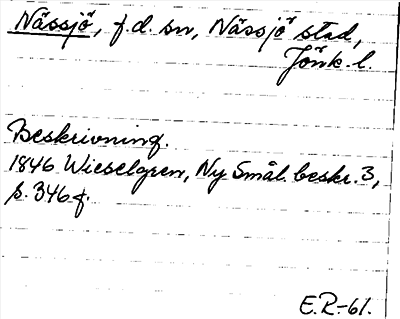 Nässjö, f.d. sn, Nässjö stad,
Jönk. l.
Beskrivning.
1846 Wieselgren, Ny Smål. beskr. 3,
s. 346 f.
E.R.-61.